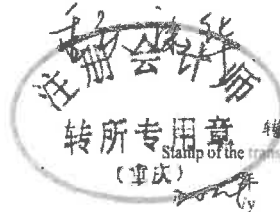 注册会计师
转所专用章 转
Stamp of the trans
（重庆）
年
/y